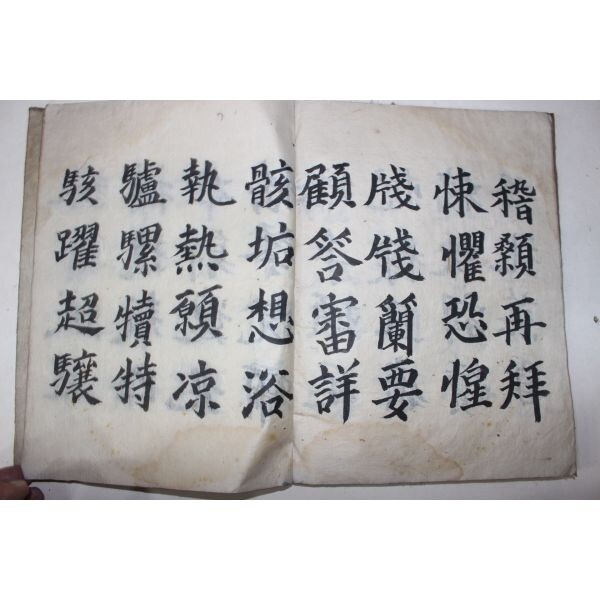 稽顙再拜
悚懼恐惶
牋牒蘭要
顧答審詳
骸垢想浴
執熱願凉
驢騾犢特
駭躍超驤